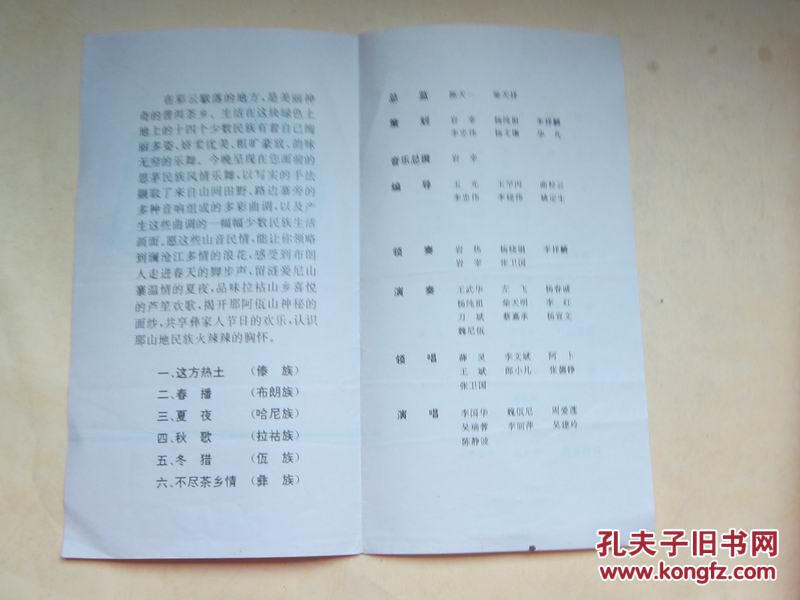 在彩云歇落的地方，是美丽神
奇的普洱茶乡、生活在这块绿色土
地上的十四个少数民族有着自己绚
丽多姿、娇柔优美、粗旷豪放、韵味
无穷的乐舞。今晚呈现在您面前的
思茅民族风情乐舞，以写实的手法
撷取了来自山间田野、路边寨旁的
多种音响组成的多彩曲调，以及产
生这些曲调的一幅幅少数民族生活
画面。愿这些山音民情，能让你领略
到澜沧江多情的浪花，感受到布朗
人走进春天的脚步声，留涟爱尼山
寨温情的夏夜，品味拉祜山乡喜悦
的芦笙欢歌，揭开那阿佤山神秘的
面纱，共享彝家人节日的欢乐，认识
那山地民族火辣辣的胸怀。
一、这方热土 （傣 族）
二、春 播 （布朗族）
三、夏 夜 （哈尼族）
四、秋 歌 （拉祜族）
五、冬 猎 （佤 族）
六、不尽茶乡情 （彝 族）
总 监 施天一 柴天祥
策 划 岩 宰 杨纯祖 李祥麟
李忠伟 杨文康 华 凡
音乐总调 岩 宰
编 导 玉 光 玉罕丙 曲栓云
李忠伟 李晓伟 姚定生
领 奏 岩 热 杨晓祖 李祥麟
岩 宰 张卫国
演 奏 王武华 左 飞 杨春诚
杨纯祖 柴天明 李 红
刀 斌 蔡嘉承 杨宜文
魏尼佤
领 唱 薛 灵 李文斌 阿 卜
王 斌 郎小儿 张儒铮
张卫国
演 唱 李国华 魏佤尼 周爱莲
吴瑞蓉 李丽萍 吴建玲
陈静波
孔夫子旧书网
www.kongfz.com